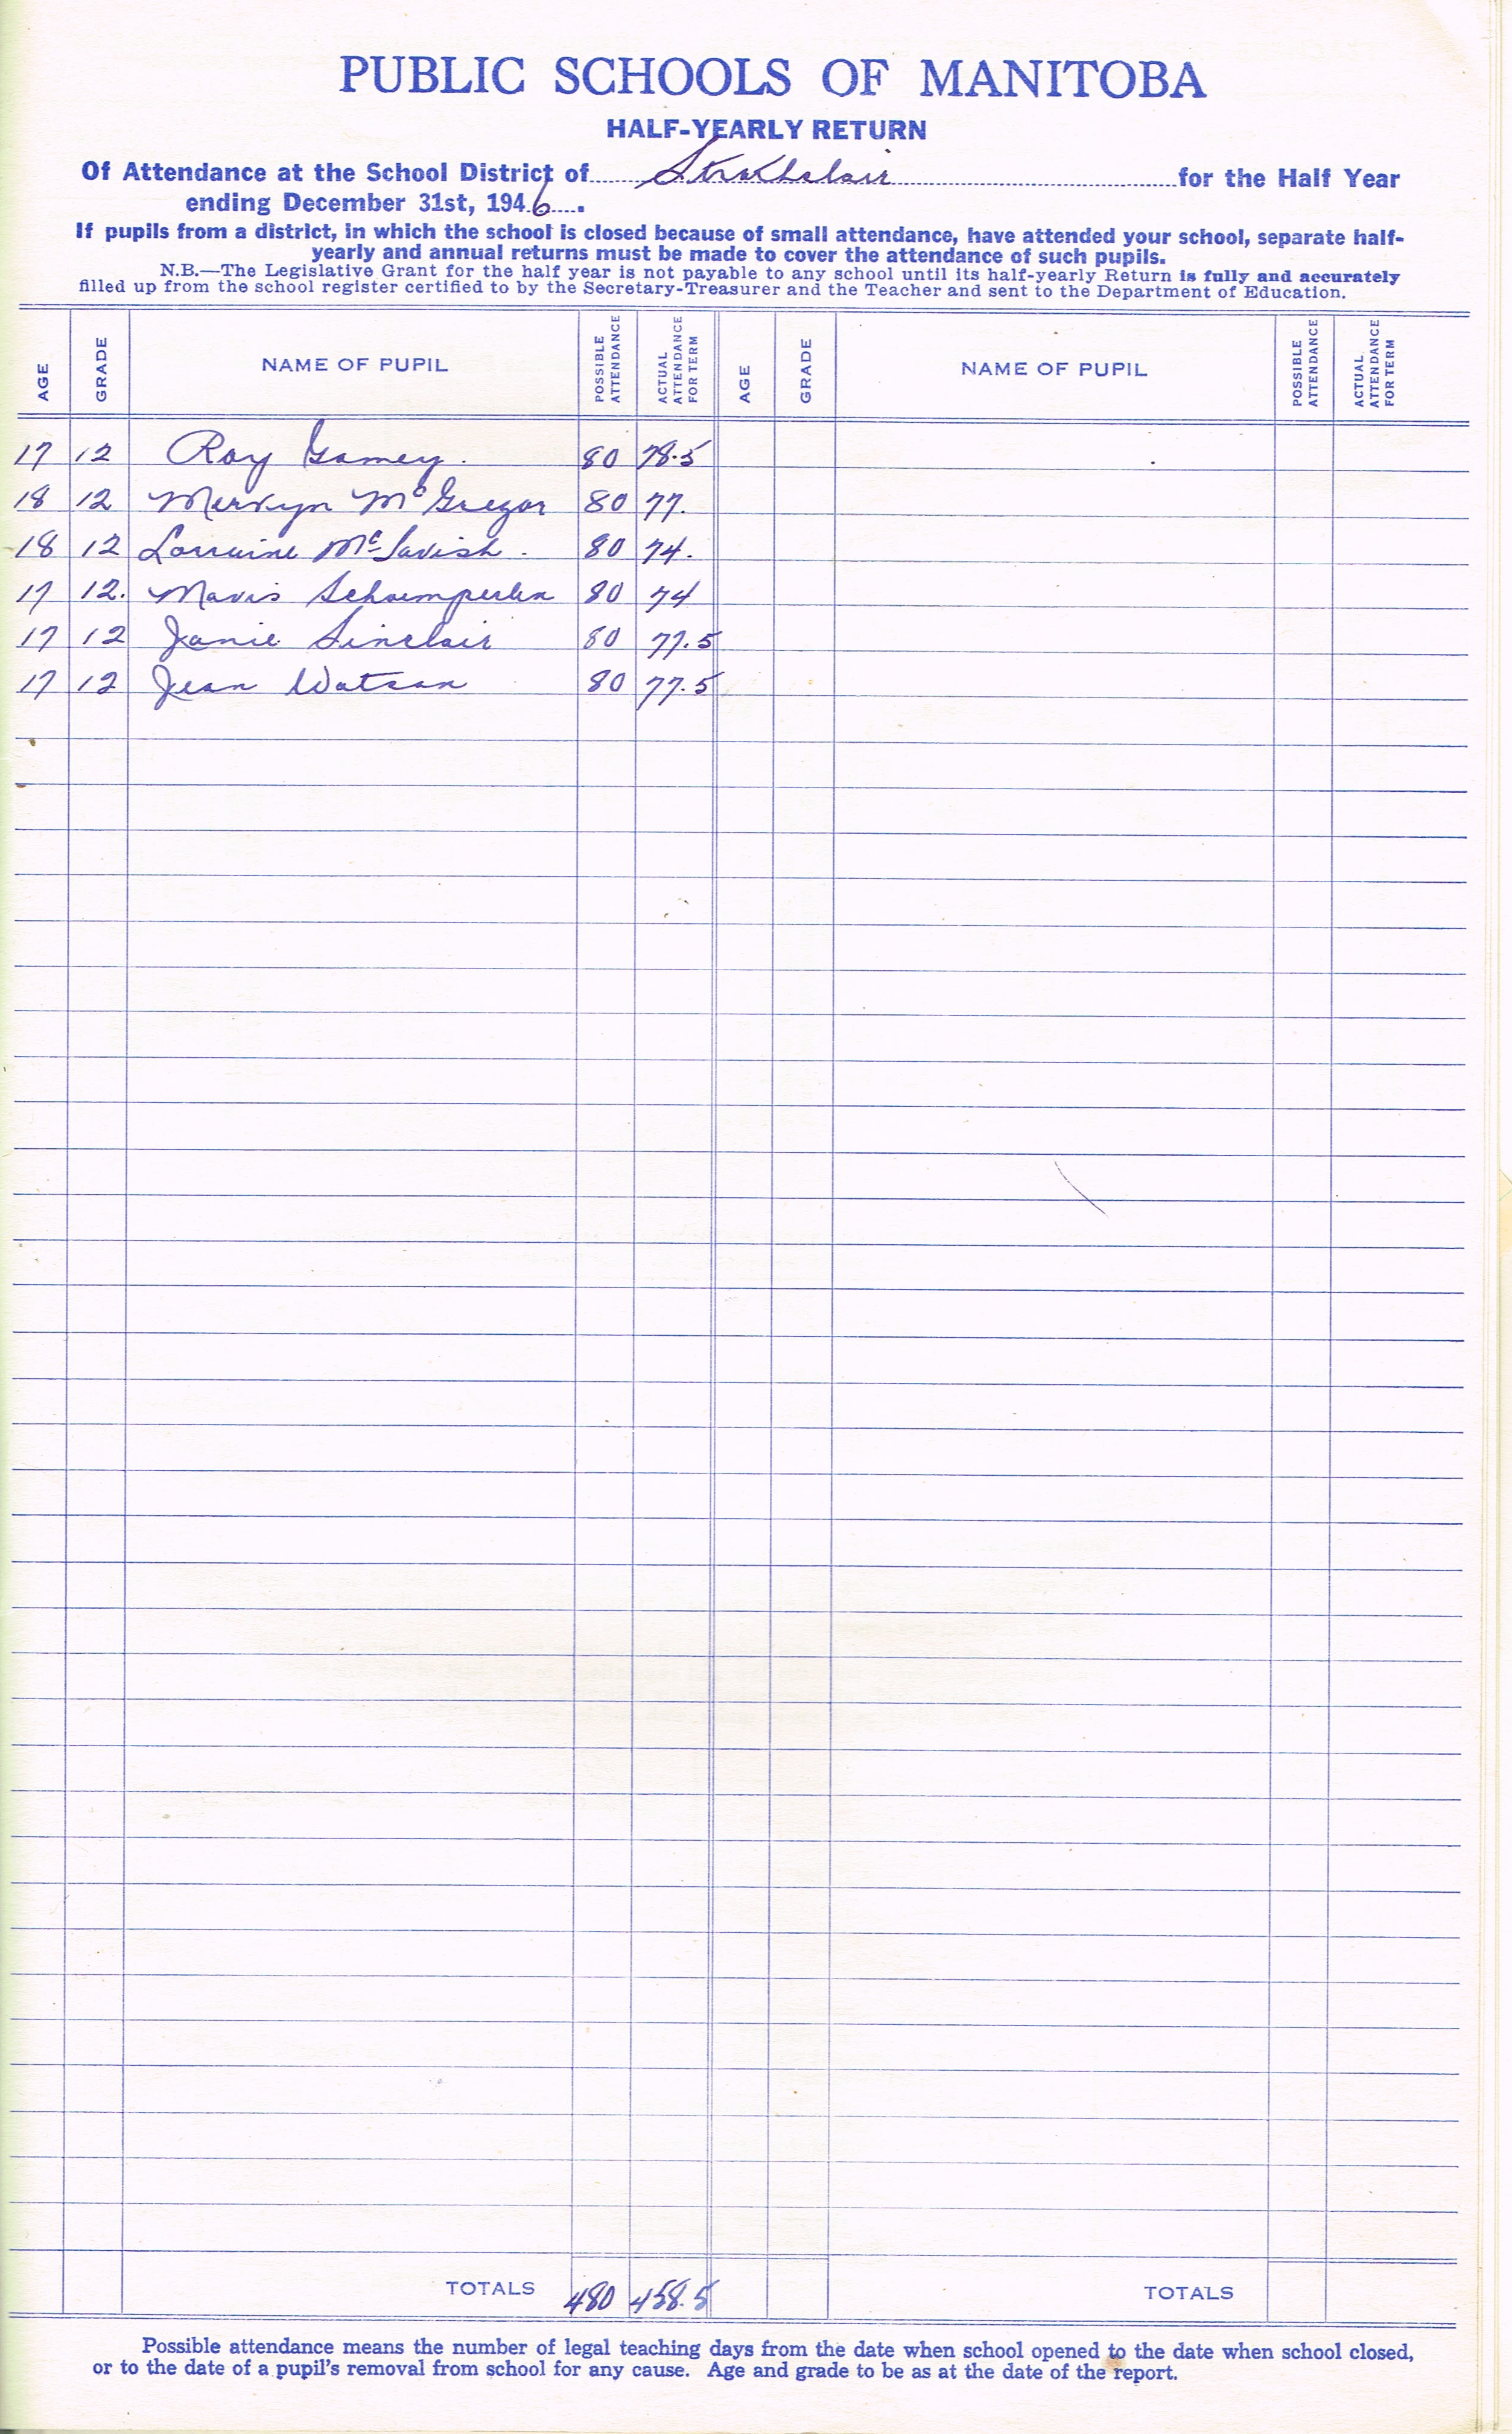 PUBLIC SCHOOLS OF MANITOBA
HALF-YEARLY RETURN
Of Attendance at the School District of Strathclair for the Half Year
ending December 31st, 1946.
If pupils from a district, in which the school is closed because of small attendance, have attended your school, separate half-
yearly and annual returns must be made to cover the attendance of such pupils.
N.B.—The Legislative Grant for the half year is not payable to any school until its half-yearly Return is fully and accurately
filled up from the school register certified to by the Secretary-Treasurer and the Teacher and sent to the Department of Education.
AGE GRADE NAME OF PUPIL POSSIBLE ATTENDANCE ACTUAL ATTENDANCE FOR TERM AGE GRADE NAME OF PUPIL POSSIBLE ATTENDANCE ACTUAL ATTENDANCE FOR TERM
17 12 Roy Gamey. 80 78.5
18 12 Mervyn McGregor 80 77.
18 12 Lorraine McTavish. 80 74.
17 12. Mavis Schoemperlen 80 74
17 12 Janie Sinclair 80 77.5
17 12 Jean Watson 80 77.5
TOTALS 480 458.5 TOTALS
Possible attendance means the number of legal teaching days from the date when school opened to the date when school closed,
or to the date of a pupil's removal from school for any cause. Age and grade to be as at the date of the report.